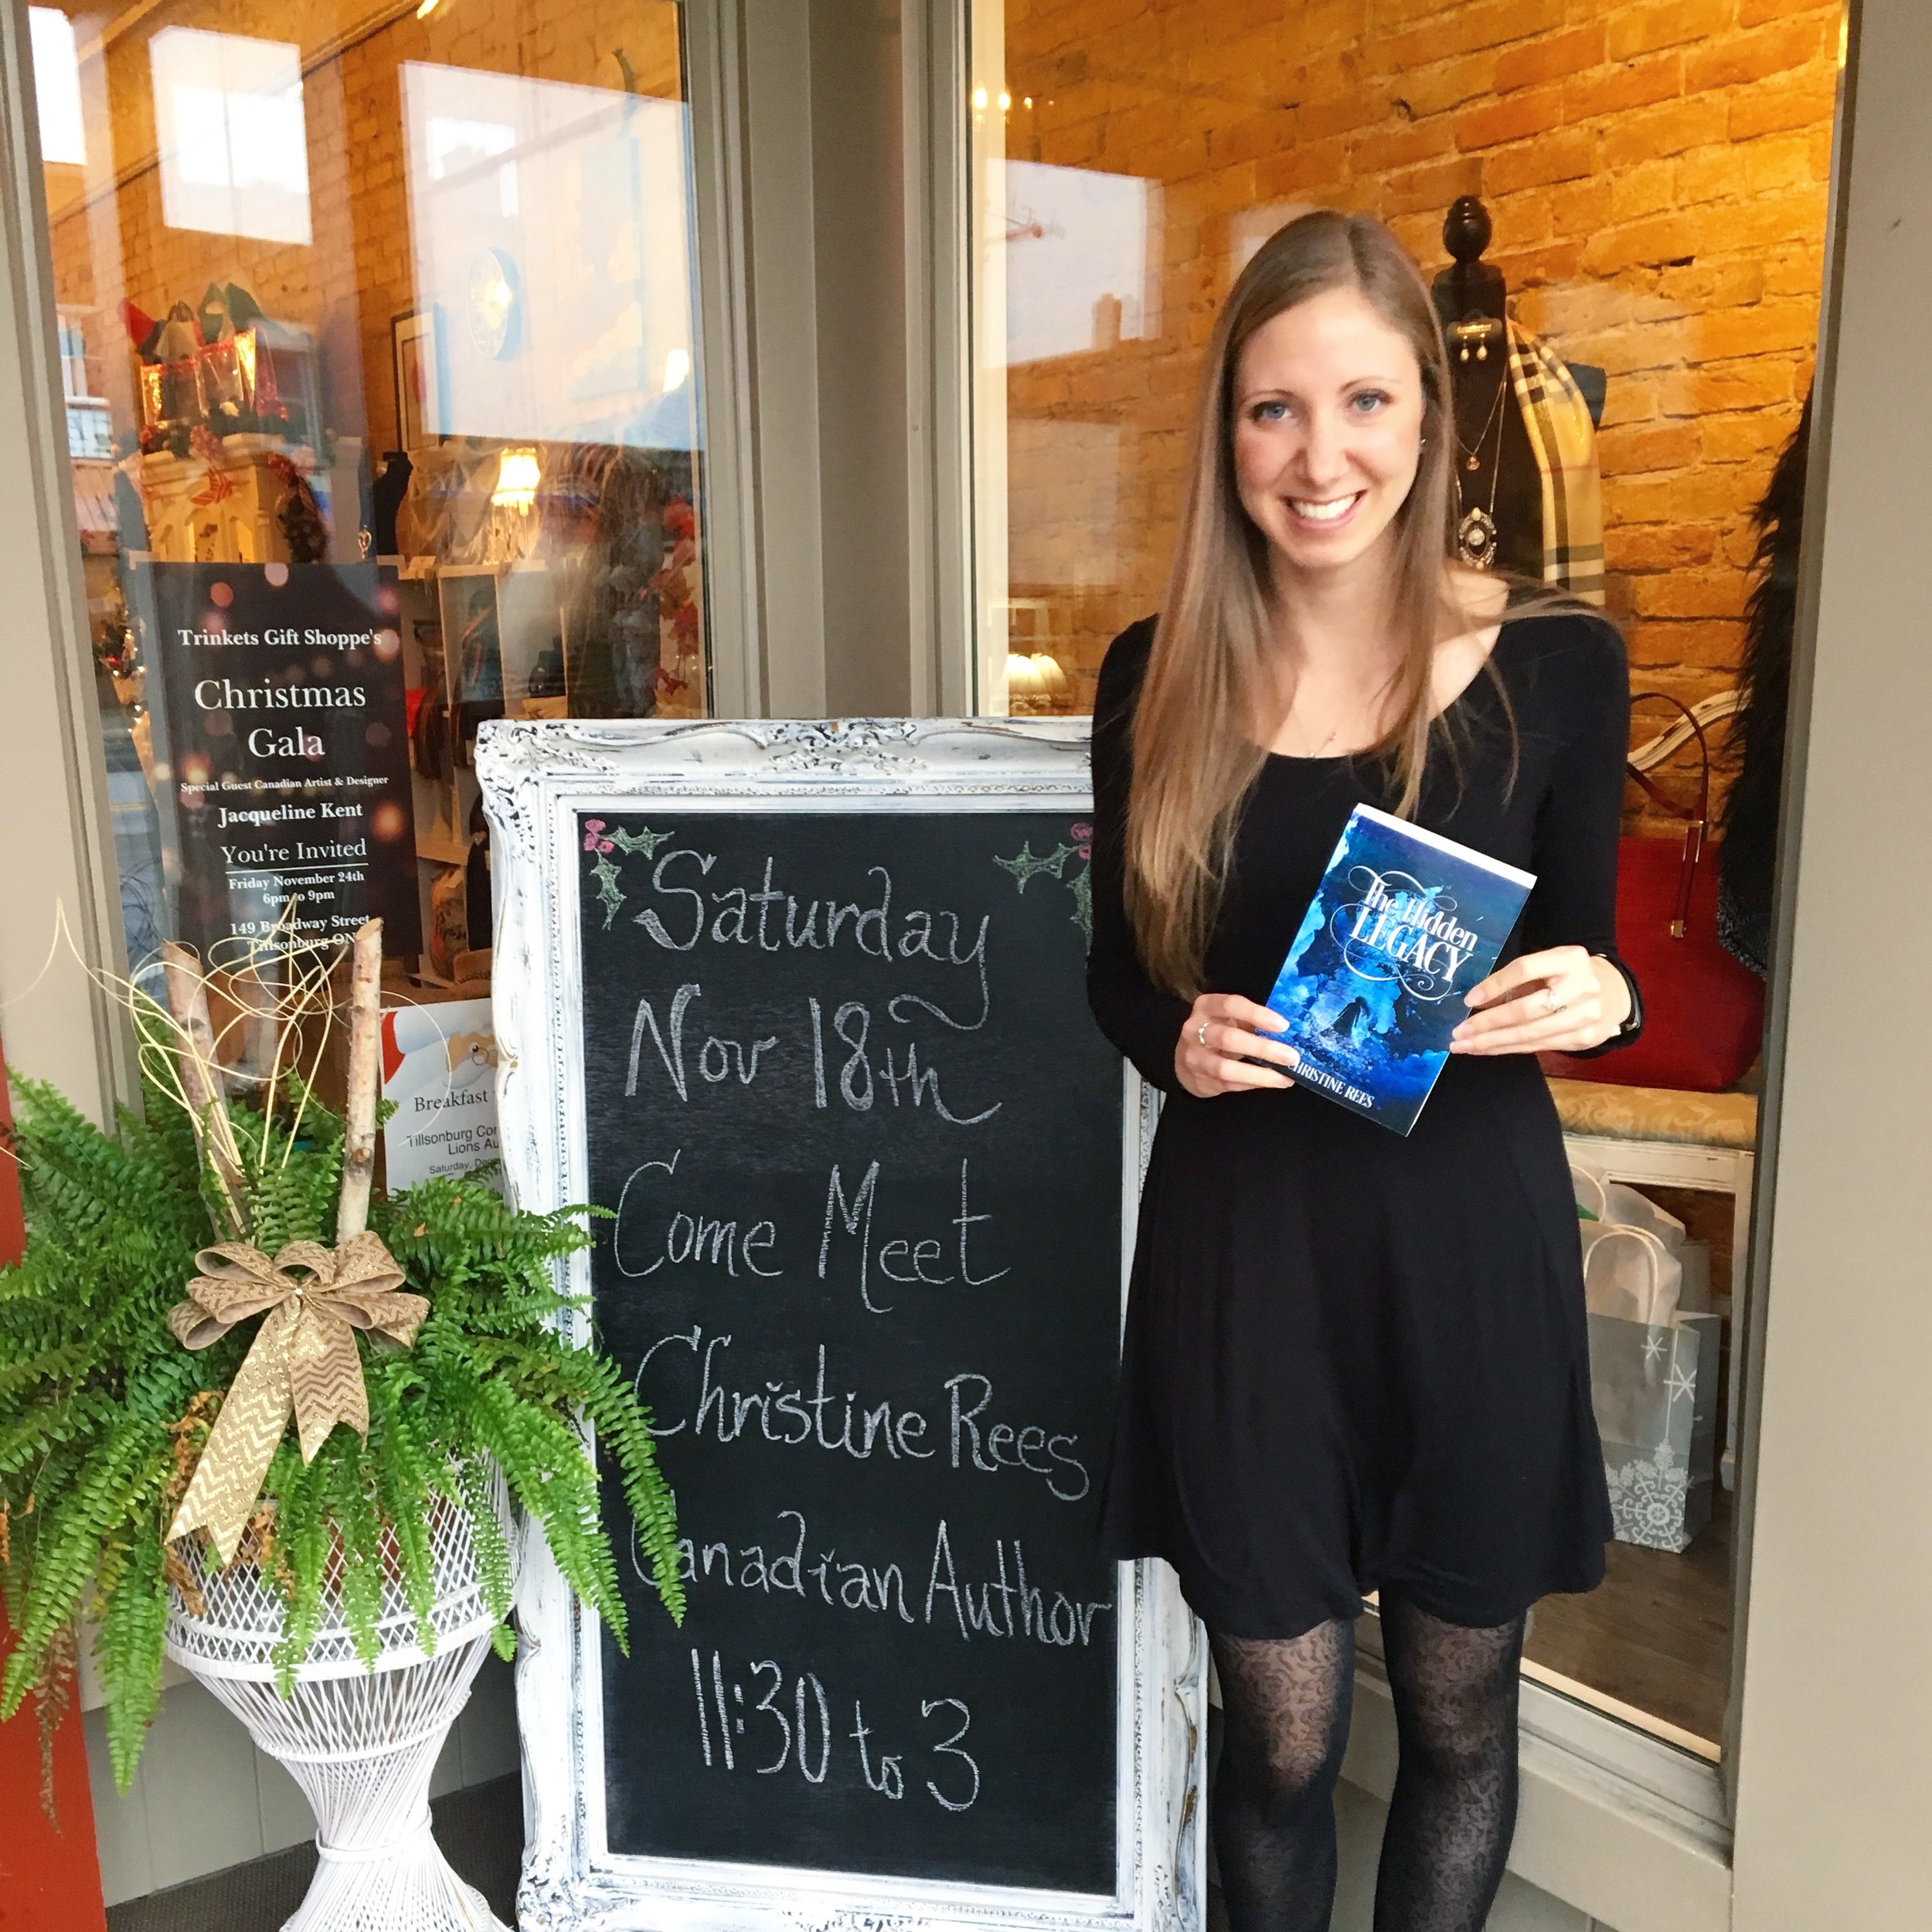 Trinkets Gift Shoppe's
Christmas
Gala
Special Guest Canadian Artist & Designer
Jacqueline Kent
You're Invited
Friday November 24th
6pm to 9pm
149 Broadway Street
Tillsonburg ON
Breakfast
Tillsonburg
Lions
Saturday,
Saturday
Nov 18th
Come Meet
Christine Rees
Canadian Author
11:30 to 3
The Hidden
LEGACY
CHRISTINE REES